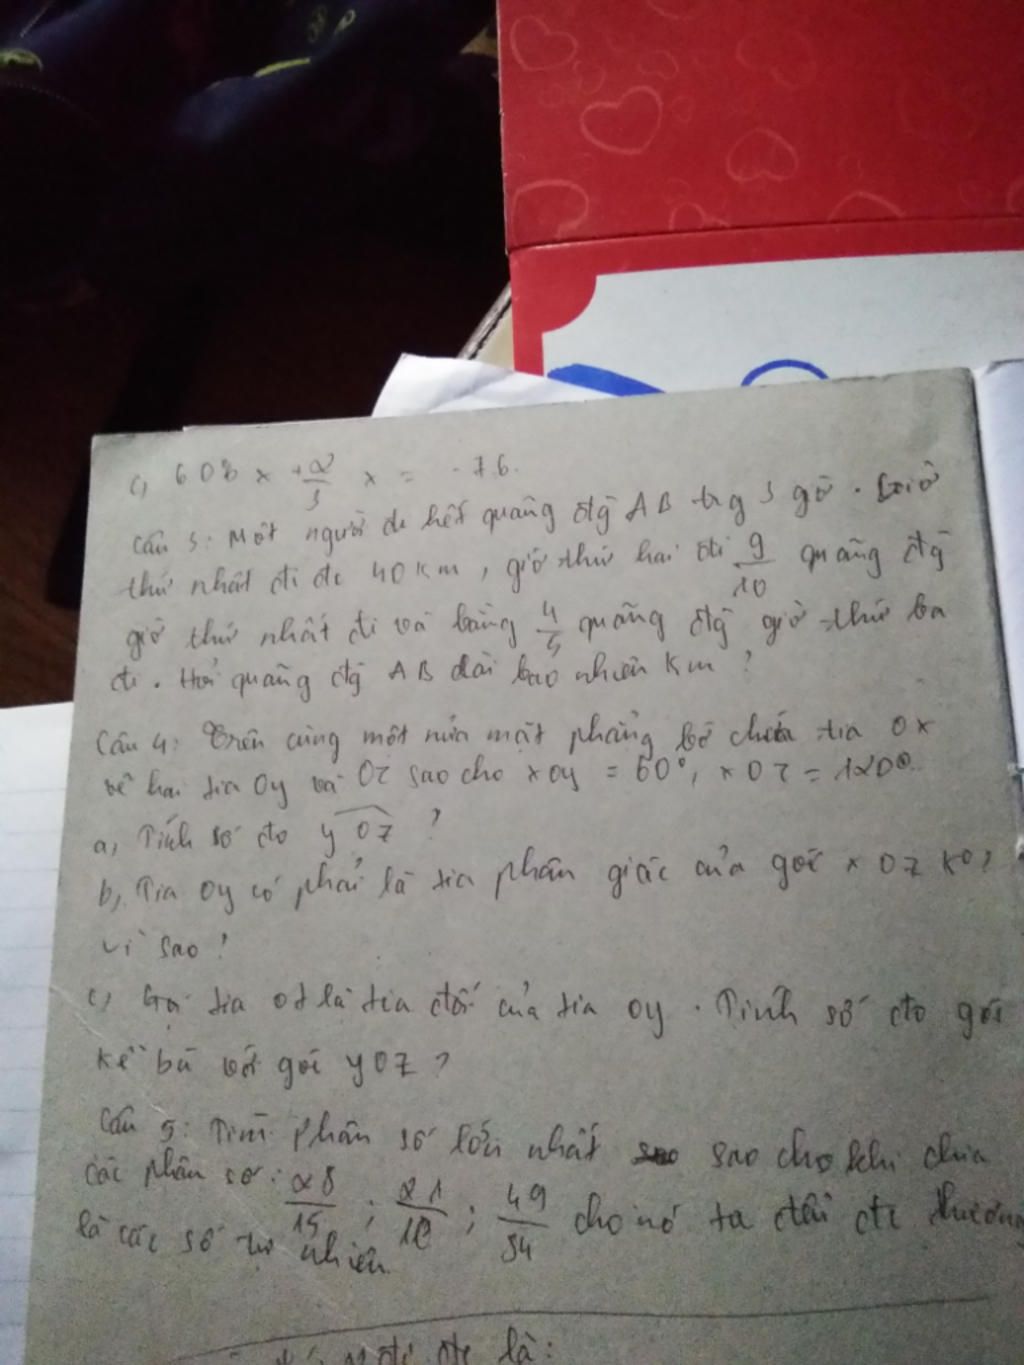 c, 60% x + 2/3 x = -76.
Câu 3: Một người đi hết quãng đtg AB trg 3 giờ. Giờ
thứ nhất đi đc 40 km, giờ thứ hai đi 9/10 quãng đtg
giờ thứ nhất đi và bằng 4/5 quãng đtg giờ thứ ba
đi. Hỏi quãng đtg AB dài bao nhiêu km?
Câu 4: Trên cùng một nửa mặt phẳng bờ chứa tia Ox
vẽ hai tia Oy và Oz sao cho xOy = 60°, xOz = 120°.
a, Tính số đo yOz?
b, Tia Oy có phải là tia phân giác của góc xOz ko?
vì sao?
c, Gọi tia Ot là tia đối của tia Oy. Tính số đo góc
kề bù với góc yOz?
Câu 5: Tìm phân số lớn nhất sao cho khi chia
các phân số: 28/15; 21/10; 49/84 cho nó ta đều đc thương
là các số tự nhiên.
đc là: